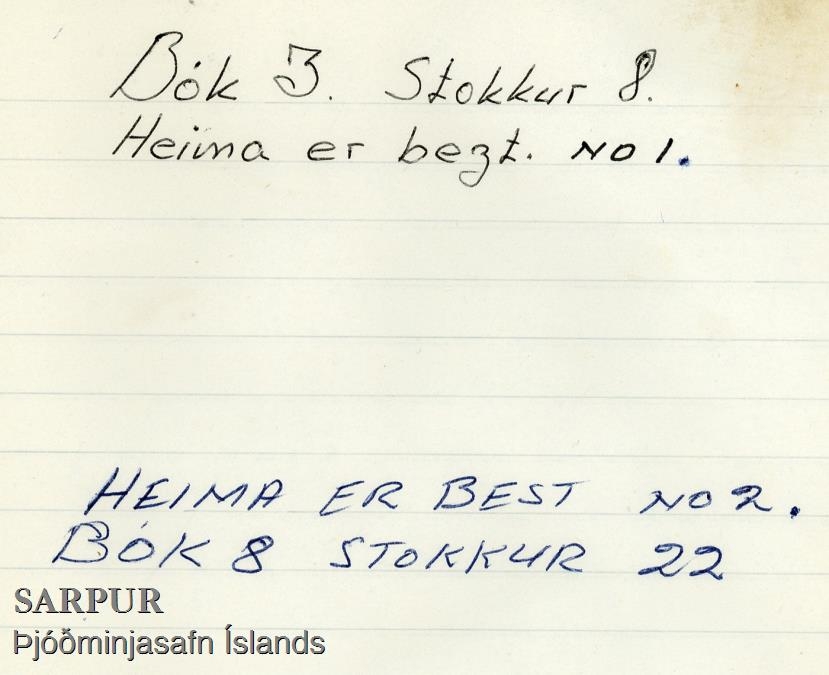 Bók 3. Stokkur 8.
Heima er bezt. NO 1.
HEIMA ER BEST NO 2.
BÓK 8 STOKKUR 22
SARPUR
Þjóðminjasafn Íslands